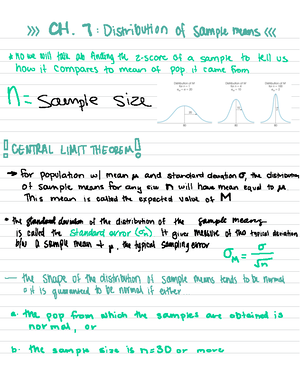 >>> CH. 7: Distribution of Sample means <<<
* no we will talk ab finding the z-score of a sample to tell us
how it compares to mean of pop it came from
n = Sample Size
! CENTRAL LIMIT THEOREM !
→ For population w/ mean μ and standard deviation σ, the distribution
of sample means for any size n will have mean equal to μ
This mean is called the expected value of M
• the standard deviation of the distribution of the sample means
is called the Standard error (σM) It gives measure of the typical deviation
b/w a sample mean + μ, the typical sampling error
σM = σ/√n
— the shape of the distribution of sample means tends to be normal
it is guaranteed to be normal if either
a. the pop from which the samples are obtained is
normal, or
b. the sample size is n=30 or more